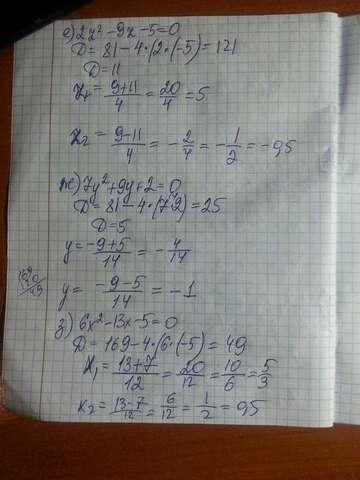 е) 2x² - 9x - 5 = 0
D = 81 - 4·(2·(-5) = 121
D = 11
x₁ = (9+11)/4 = 20/4 = 5
x₂ = (9-11)/4 = -2/4 = -1/2 = -0,5
ж) 7y² + 9y + 2 = 0
D = 81 - 4·(7·2) = 25
D = 5
y = (-9+5)/14 = -4/14
y = (-9-5)/14 = -1
з) 6x² - 13x - 5 = 0
D = 169 - 4·(6·(-5) = 49
x₁ = (13+7)/12 = 20/12 = 10/6 = 5/3
x₂ = (13-7)/12 = 6/12 = 1/2 = 0,5